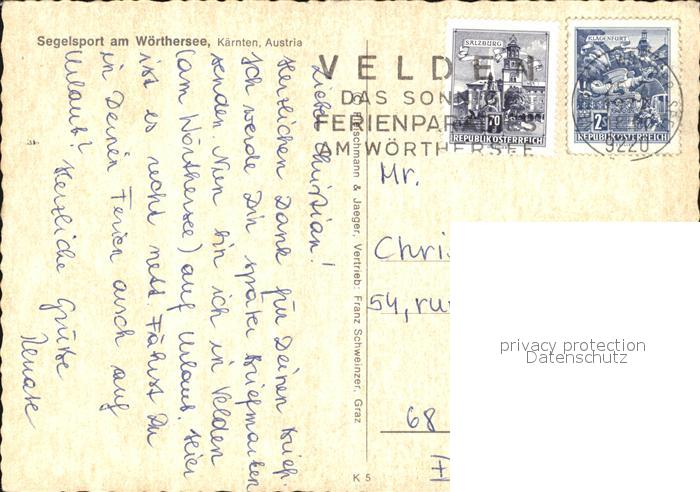 Segelsport am Wörthersee, Kärnten, Austria
Lieber Christian!
Herzlichen Dank für Deinen Brief.
Ich werde Dir später Briefmarken
senden. Nun bin ich in Velden
(am Wörthersee) auf Urlaub. Hier
ist es recht nett. Fährst Du
in Deinen Ferien auch auf
Urlaub? Herzliche Grüße
Renate
Fleischmann & Jaeger, Vertrieb: Franz Schweinzer, Graz
K 5
VELDEN
DAS SON
FERIENPAR
AM WÖRTHERSEE
SALZBURG
70
REPUBLIK ÖSTERREICH
KLAGENFURT
2S
REPUBLIK ÖSTERREICH
9220
Mr.
Chris
54, rue
68
privacy protection
Datenschutz